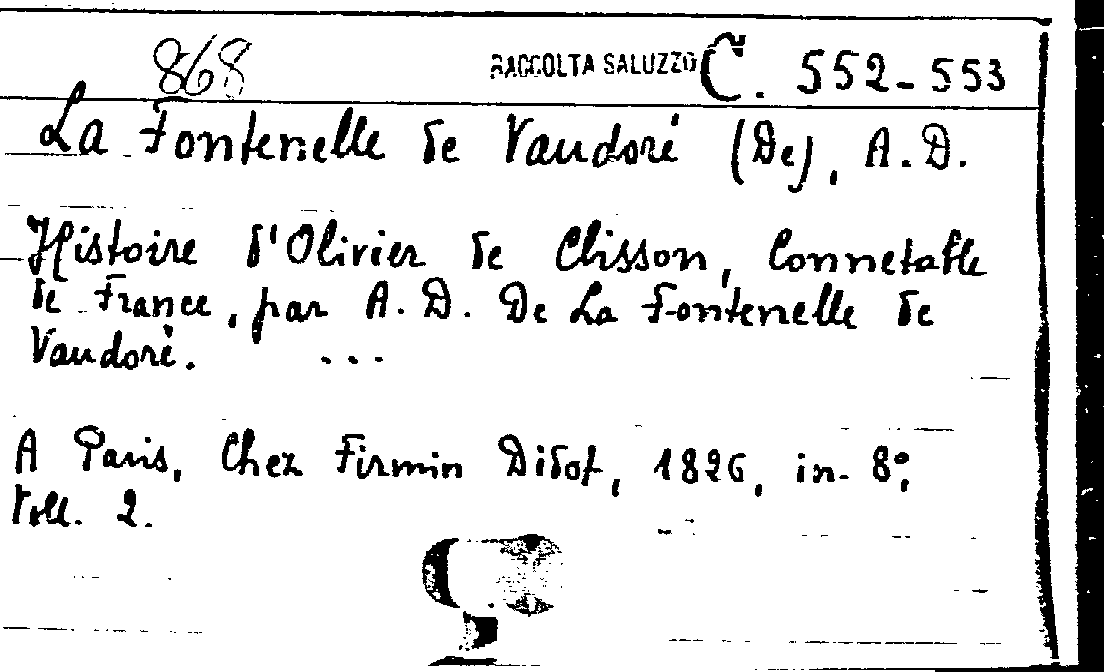 868 RACCOLTA SALUZZO C. 552-553
La Fontenelle de Vaudoré (De), A.D.
Histoire d'Olivier de Clisson, Connetable
de France, par A.D. De La Fontenelle de
Vaudoré. ...
A Paris, Chez Firmin Didot, 1826, in-8°;
Voll. 2.